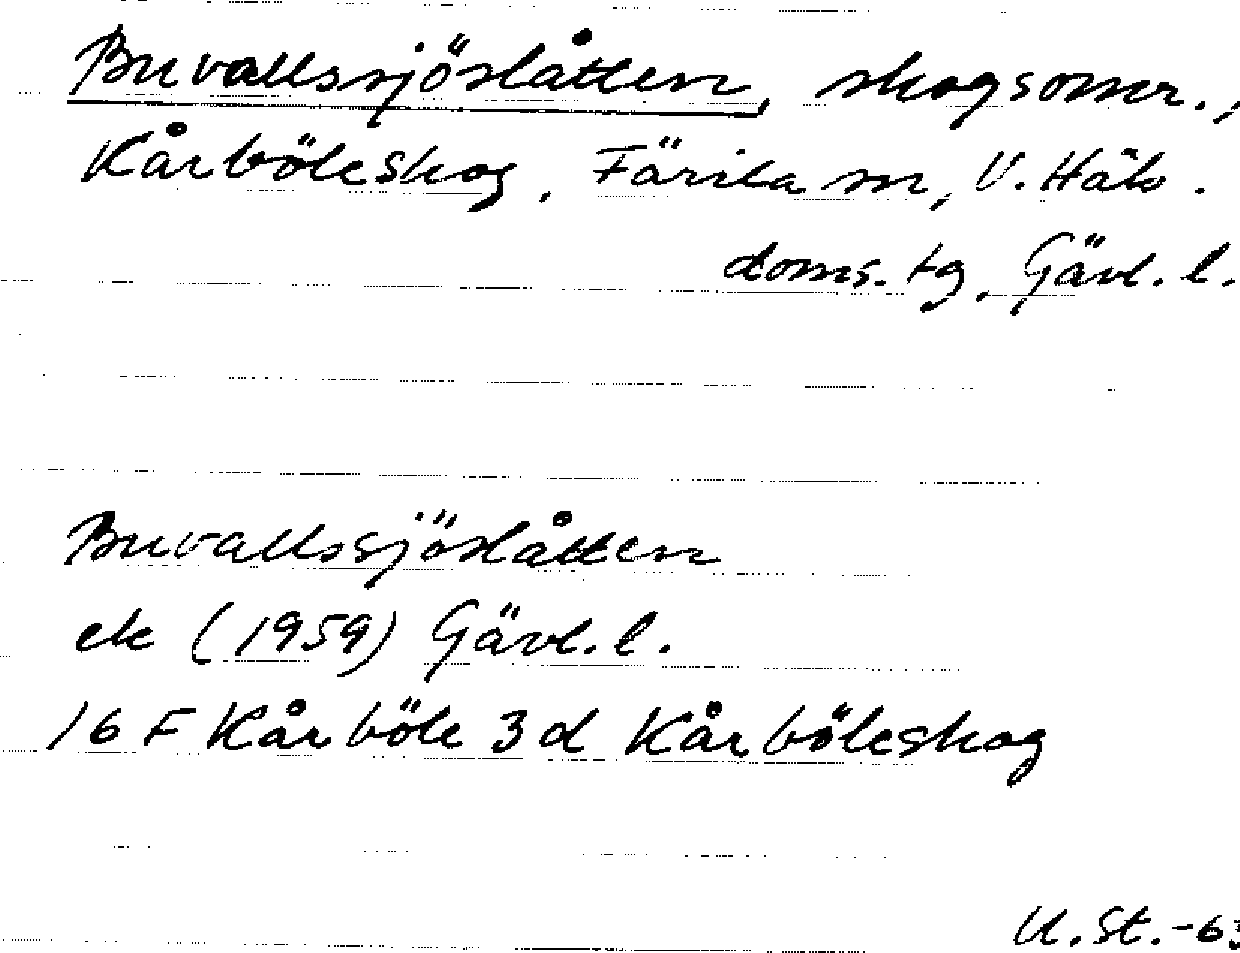 Buvallssjöslåtten, skogsomr.,
Kårböleskog, Färila sn, V. Häls.
doms. tg, Gävl. l.
Buvallssjöslåtten
ek (1959) Gävl. l.
16 F Kårböle 3 d Kårböleskog
U. St. -63